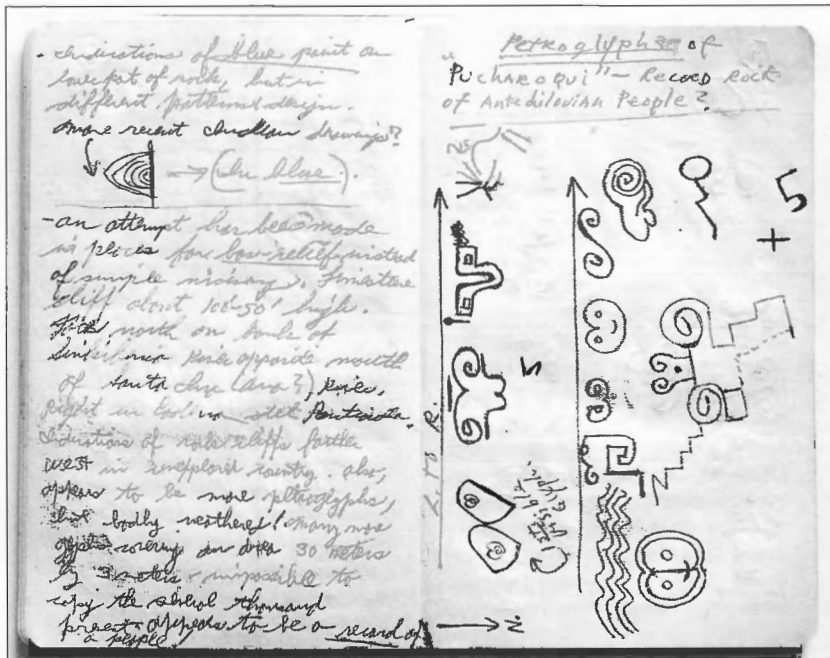 - Indications of blue paint on
lower pt of rock, but in
different patterns & design.
more recent Indian drawings?
→ (In blue).
- an attempt has been made
in places for bas-relief instead
of simple incising. Limestone
cliff about 100'-50' high.
north on bank of
River opposite mouth
of Santa Ana?) River,
right in
Indications of cliffs farther
west in unexplored country. also,
appears to be more petroglyphs,
but badly weathered! many more
glyphs covering an area 30 meters
by 3 meters - impossible to
copy the several thousand
present - appears to be a record of
a people
Petroglyphs of
"Pucharoqui" - Record Rock
of Antediluvian People?
L. TO R.
1st
Visible
Glyph.
N.
+ 5